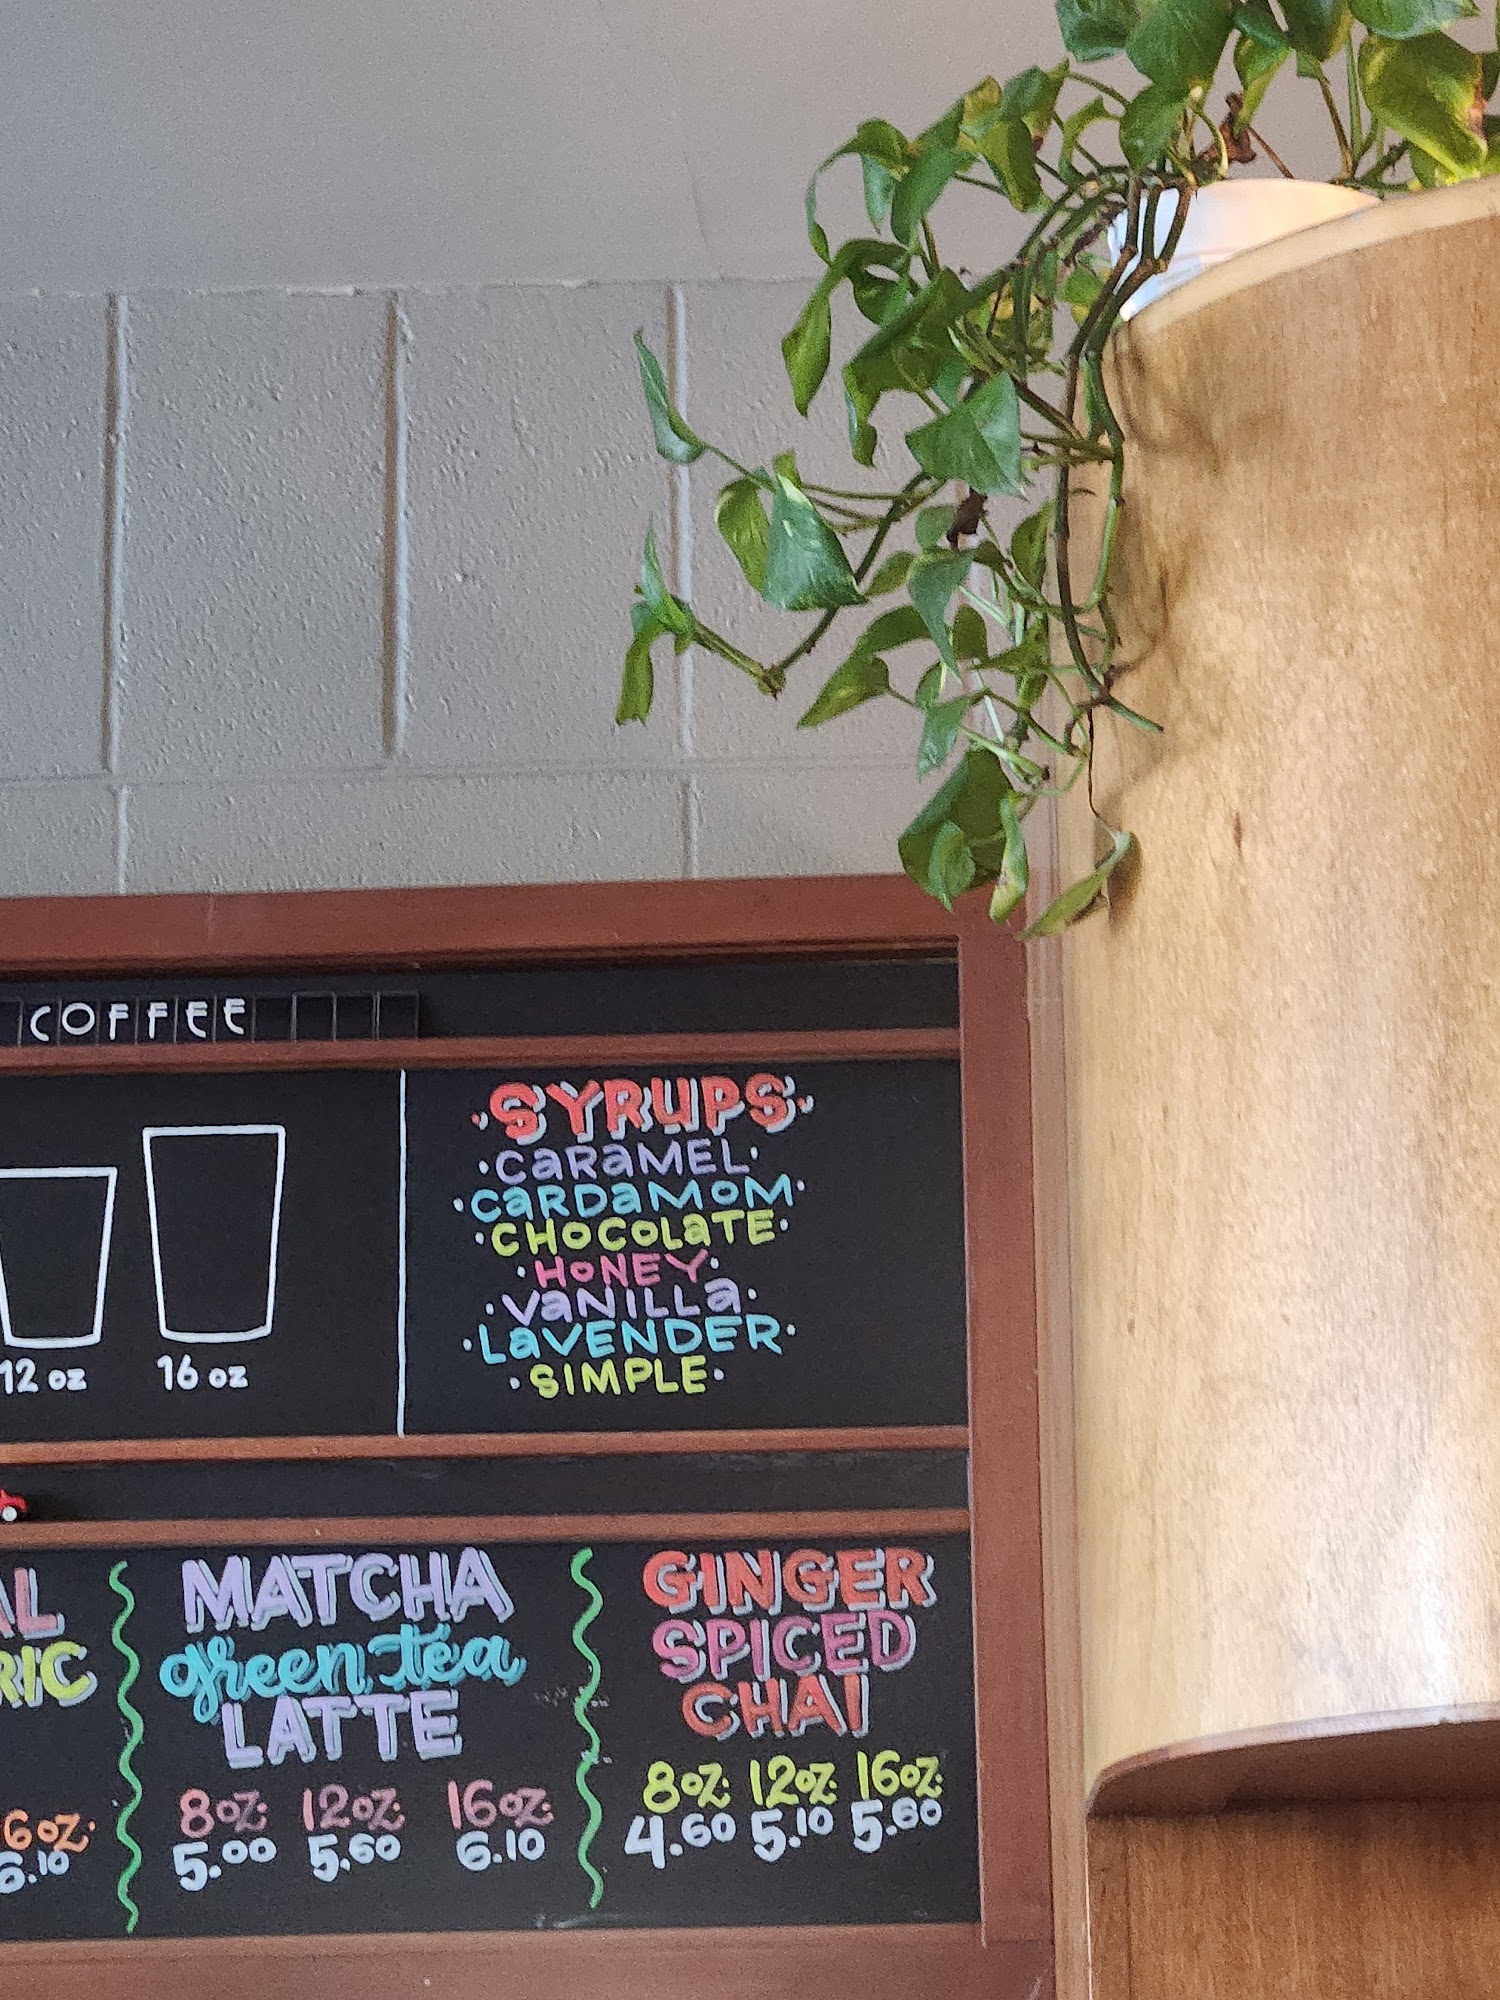 COFFEE
12 oz
16 oz
SYRUPS
CARAMEL
CARDAMOM
CHOCOLATE
HONEY
VANILLA
LAVENDER
SIMPLE
MATCHA
green tea
LATTE
8oz 12oz 16oz
5.00 5.60 6.10
GINGER
SPICED
CHAI
8oz 12oz 16oz
4.60 5.10 5.60